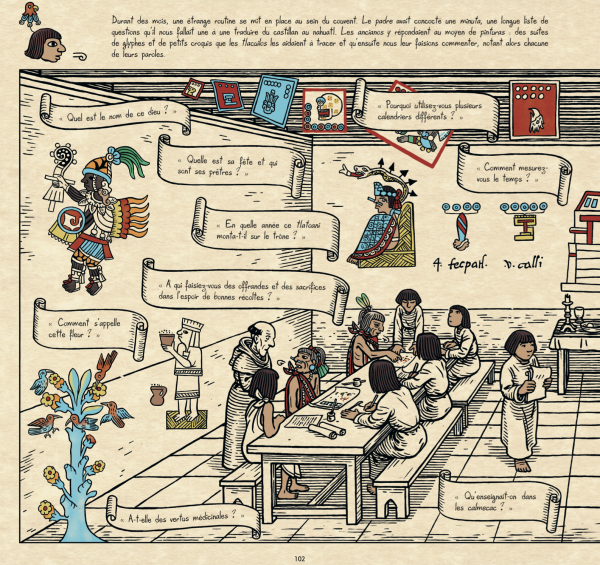 Durant des mois, une étrange routine se mit en place au sein du couvent. Le padre avait concocté une minuta, une longue liste de
questions qu'il nous fallait une à une traduire du castillan au nahuatl. Les ancianos y répondaient au moyen de pinturas : des suites
de glyphes et de petits croquis que les tlacuilos les aidaient à tracer et qu'ensuite nous leur faisions commenter, notant alors chacune
de leurs paroles.
« Quel est le nom de ce dieu ? »
« Pourquoi utilisez-vous plusieurs
calendriers différents ? »
« Quelle est sa fête et qui
sont ses prêtres ? »
« Comment mesurez-
vous le temps ? »
« En quelle année ce tlatoani
monta-t-il sur le trône ? »
4. tecpatl. v. calli
« A qui faisiez-vous des offrandes et des sacrifices
dans l'espoir de bonnes récoltes ? »
« Comment s'appelle
cette fleur ? »
« A-t-elle des vertus médicinales ? »
« Qu'enseignait-on dans
les calmecac ? »
102